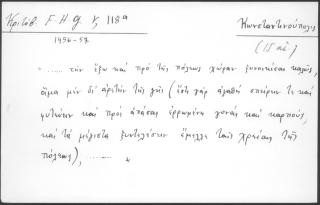 Κριτόβ. F. H. G. V, 118ᵃ
Κωνσταντινούπολις
1456-57
(15 αἰ.)
" ...... τὴν ἔξω καὶ πρὸ τῆς πόλεως χώραν ξυνοικίσαι καλῶς,
ἅμα μὲν δι' ἀρετὴν τῆς γῆς (ἔστι γὰρ ἀγαθὴ σπείρειν τε καὶ
φυτεύειν καὶ πρὸς ἁπάσας ἐρρωμένη γονὰς καὶ καρποὺς
καὶ τὰ μέγιστα ξυντελέσειν ἔμελλε ταῖς χρείαις τῆς
πόλεως), ........ "